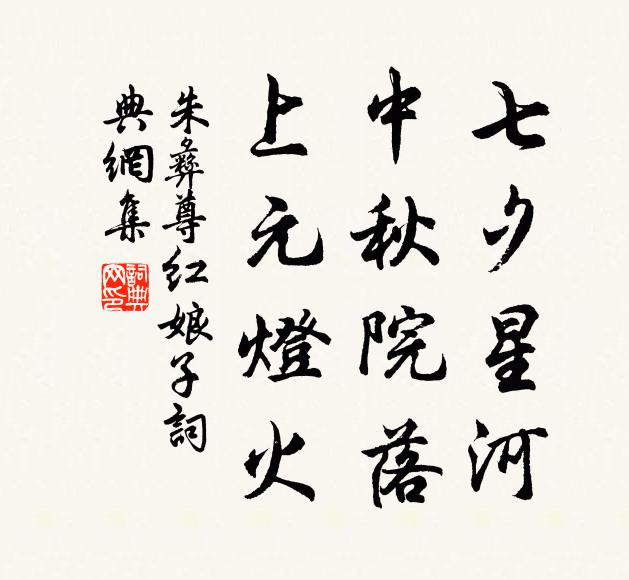 七夕星河
中秋院落
上元燈火
朱彝尊紅娘子詞
典網集
詞典网印